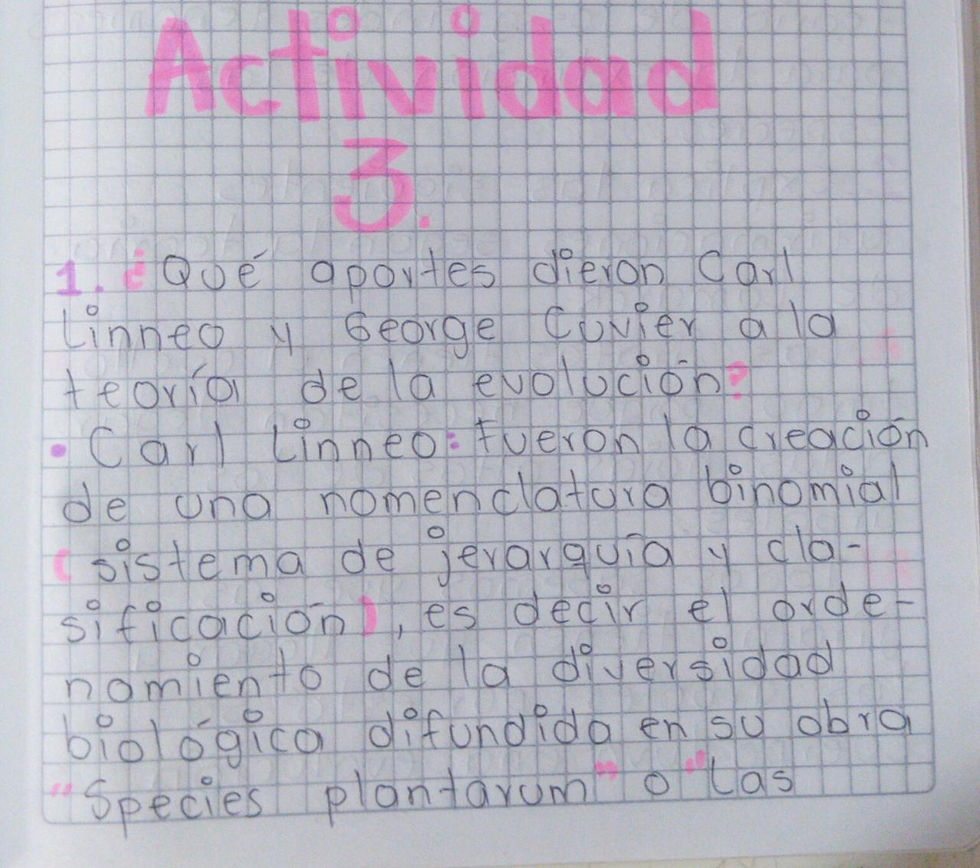 Actividad
3.
1. ¿Qué aportes dieron Carl
Linneo y George Cuvier a la
teoría de la evolución?
• Carl Linneo: fueron la creación
de una nomenclatura binomial
(sistema de jerarquía y cla-
sificación), es decir el orde-
namiento de la diversidad
biológica difundida en su obra
"Species plantarum" o "Las